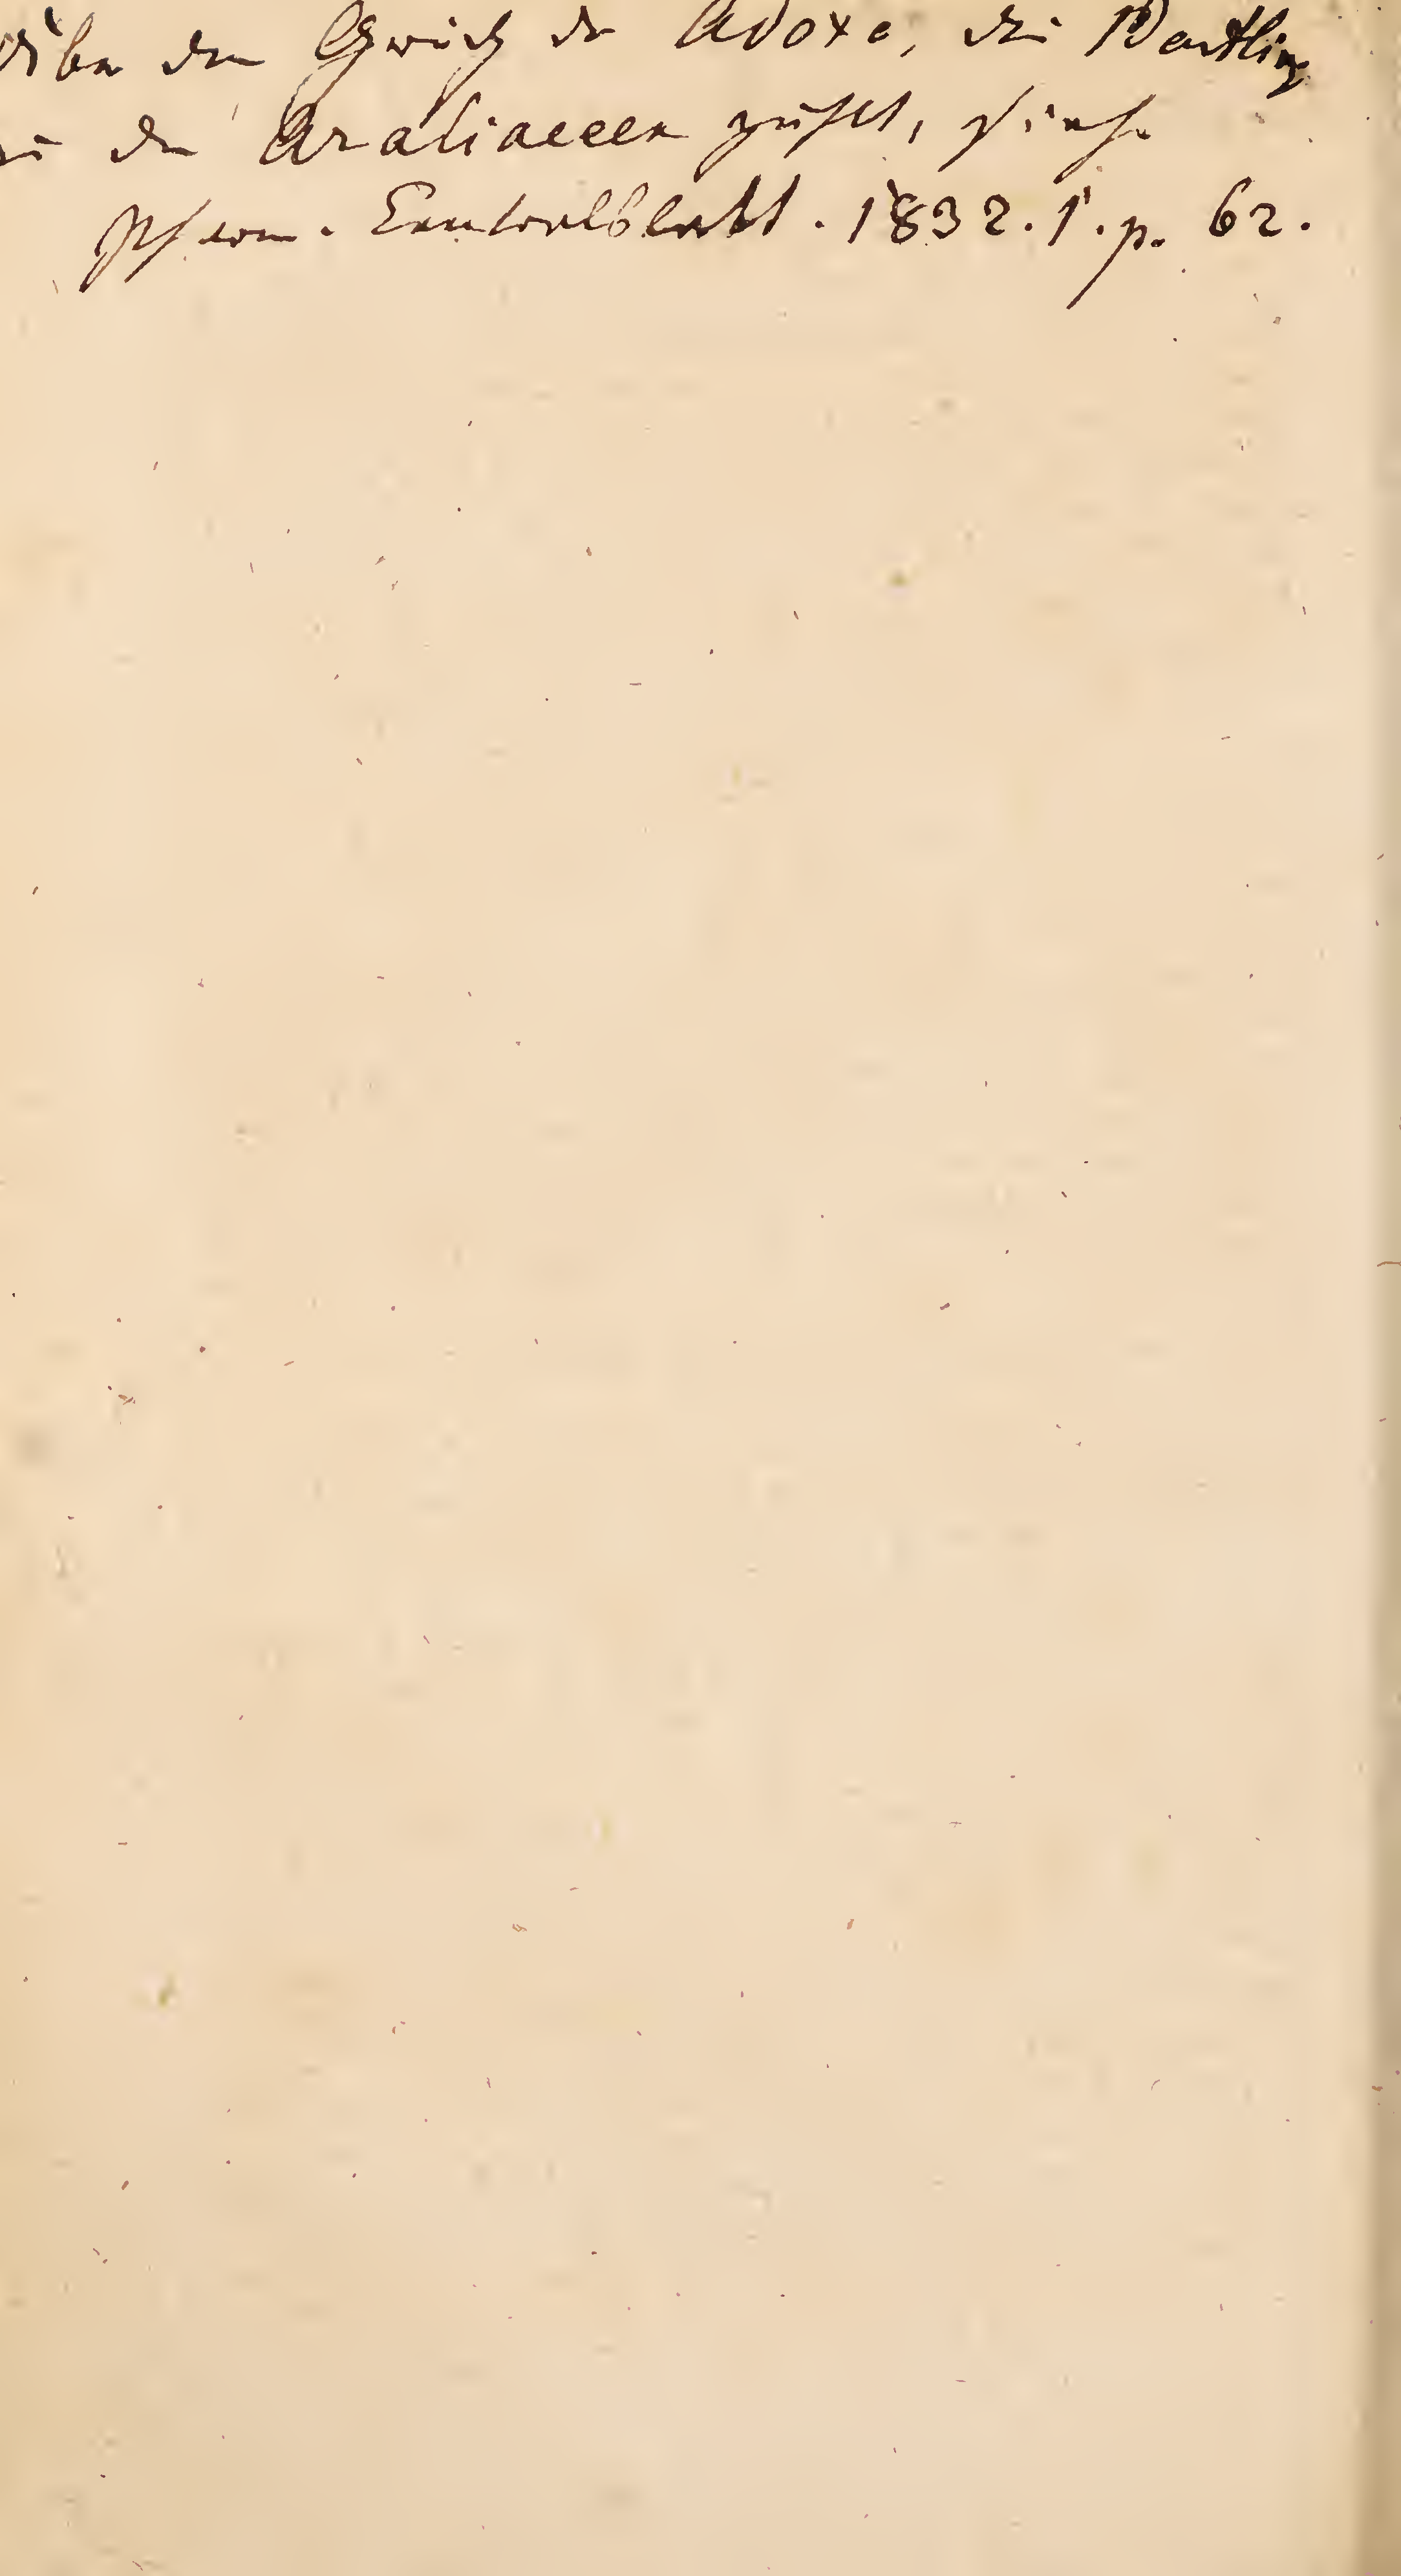 Über den Geruch der Adoxa, die Bartling
zu den Araliaceen zählt, siehe
Pharm. Centralblatt. 1832. 1. p. 62.